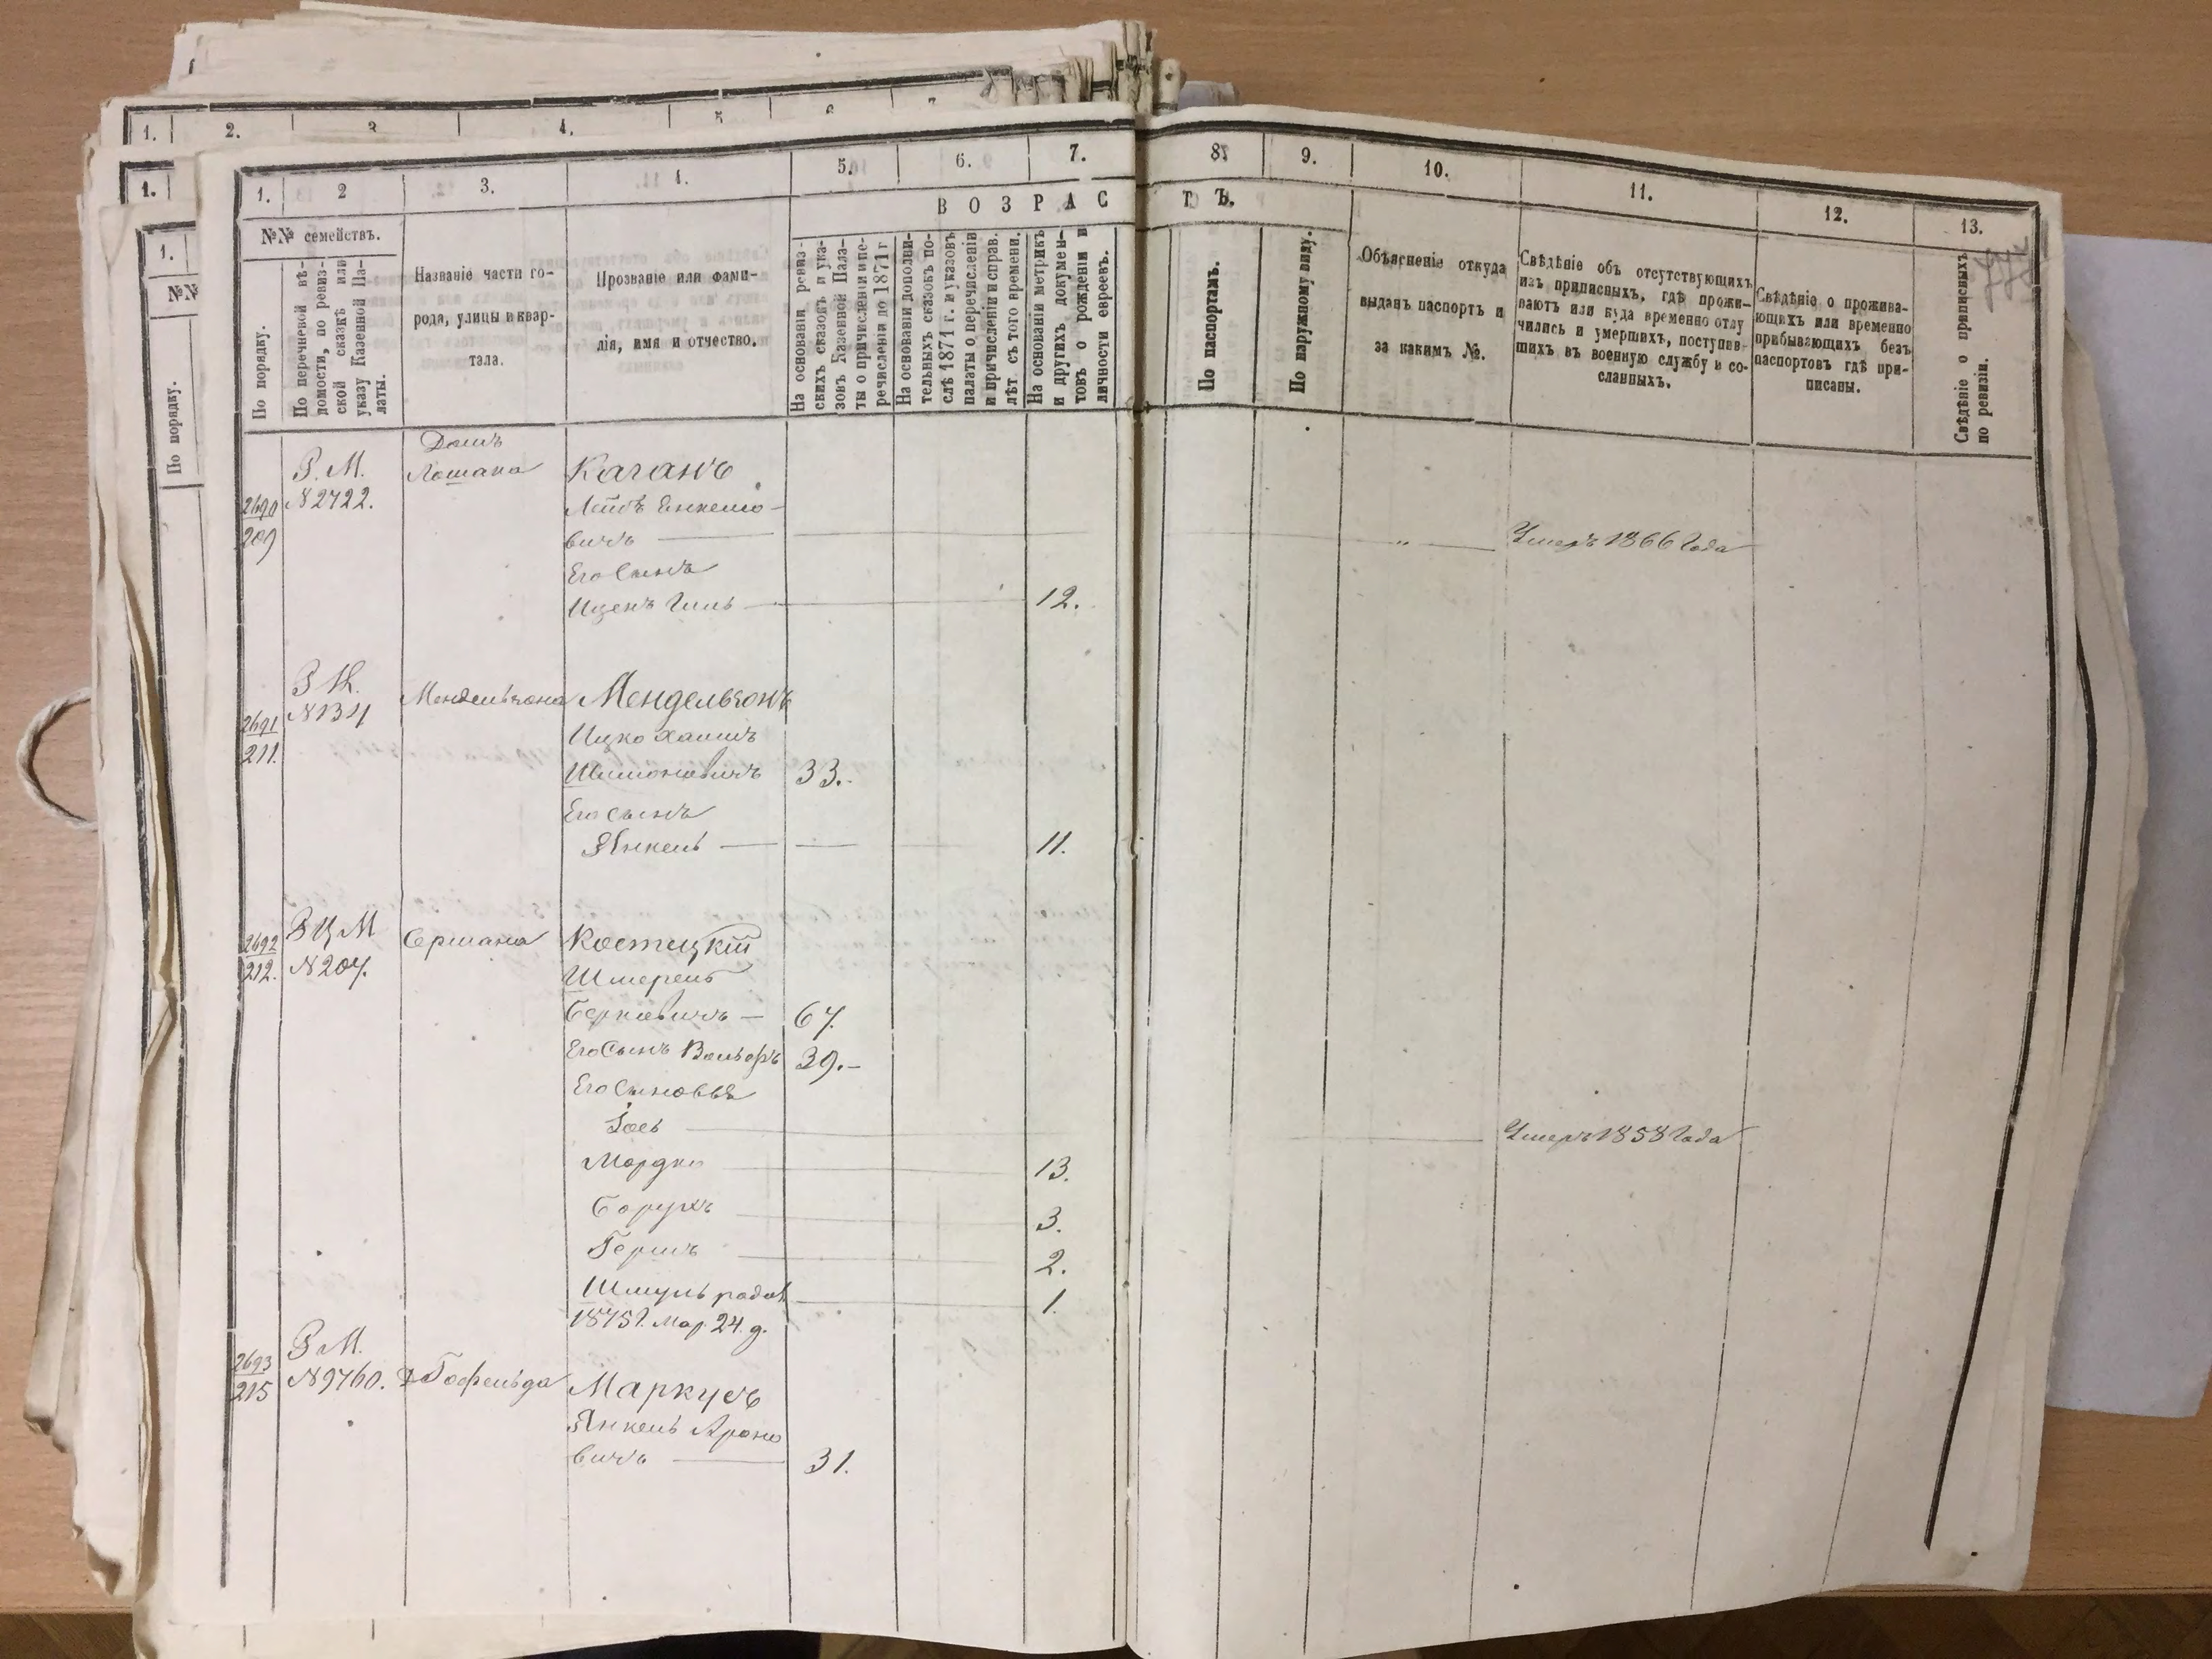 1. 2. 3 4. 5 6 7
1.
1.
№№
По порядку.
1. 2 3. 4. 5. 6. 7. 8. 9. 10. 11. 12. 13.
ВОЗРАСТЪ.
№№ семействъ.
По порядку.
По перечневой вѣ-
домости, по ревиз-
ской сказкѣ или
указу Казенной Па-
латы.
Названіе части го-
рода, улицы и квар-
тала.
Прозваніе или фами-
лія, имя и отчество.
На основаніи ревиз-
скихъ сказокъ и ука-
зовъ Казенной Пала-
ты о причисленіи и пе-
речисленіи до 1871 г
На основаніи дополни-
тельныхъ сказокъ по-
слѣ 1871 г. и указовъ
палаты о перечисленіи
и причисленіи исправ.
лѣт съ того времени.
На основаніи метрикъ
и другихъ докумен-
товъ о рожденіи и
личности евреевъ.
По паспортамъ.
По наружному виду.
Объясненіе откуда
выданъ паспортъ и
за какимъ №.
Свѣдѣніе объ отсутствующихъ
изъ приписныхъ, гдѣ прожи-
ваютъ или куда временно отлу
чились и умершихъ, поступив-
шихъ въ военную службу и со-
сланныхъ.
Свѣдѣніе о прожива-
ющихъ или временно
прибывающихъ безъ
паспортовъ гдѣ при-
писаны.
Свѣдѣніе о приписныхъ
по ревизіи.
Домъ
Р. М. Лошака Каганъ
2690 №2722. Лейбъ Енкелио-
209 вичъ — " — Умеръ 1866 Года
Его Сынъ
Ицекъ Гиль — 12.
Р М. Мендельзона Мендельзонъ
2691 №134
211. Ицко Хаимъ
Шимоновичъ 33.
Его Сынъ
Янкель — — 11.
2692 Р Ц М Сермана Костецкій
212. №207. Шмерель
Берковичъ — 67.
Его Сынъ Вольфъ 39.
Его Сыновья
Іось — Умеръ 1858 Года
Мордко — 13.
Борухъ — 3.
Гершъ — 2.
Шмуль родил — 1.
1875 г. Мар. 24. д.
2693 Р М.
215 №9760. Д Гофельда Маркусъ
Янкель Ароно
вичъ — 31.